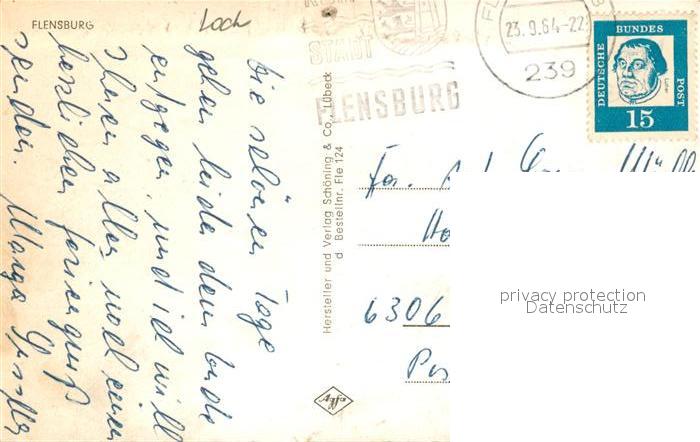 FLENSBURG
Loch
Die schönen Tage
gehen leider dem Ende
entgegen, und ich will
Ihnen allen noch einen
herzlichen Feriengruß
senden. Marga
Hersteller und Verlag Schöning & Co., Lübeck
d. Bestellnr. Fle 124
Agfa
STADT
FLENSBURG
23.9.64-22
239
DEUTSCHE BUNDESPOST
Luther
15
Fa.
6306
privacy protection
Datenschutz